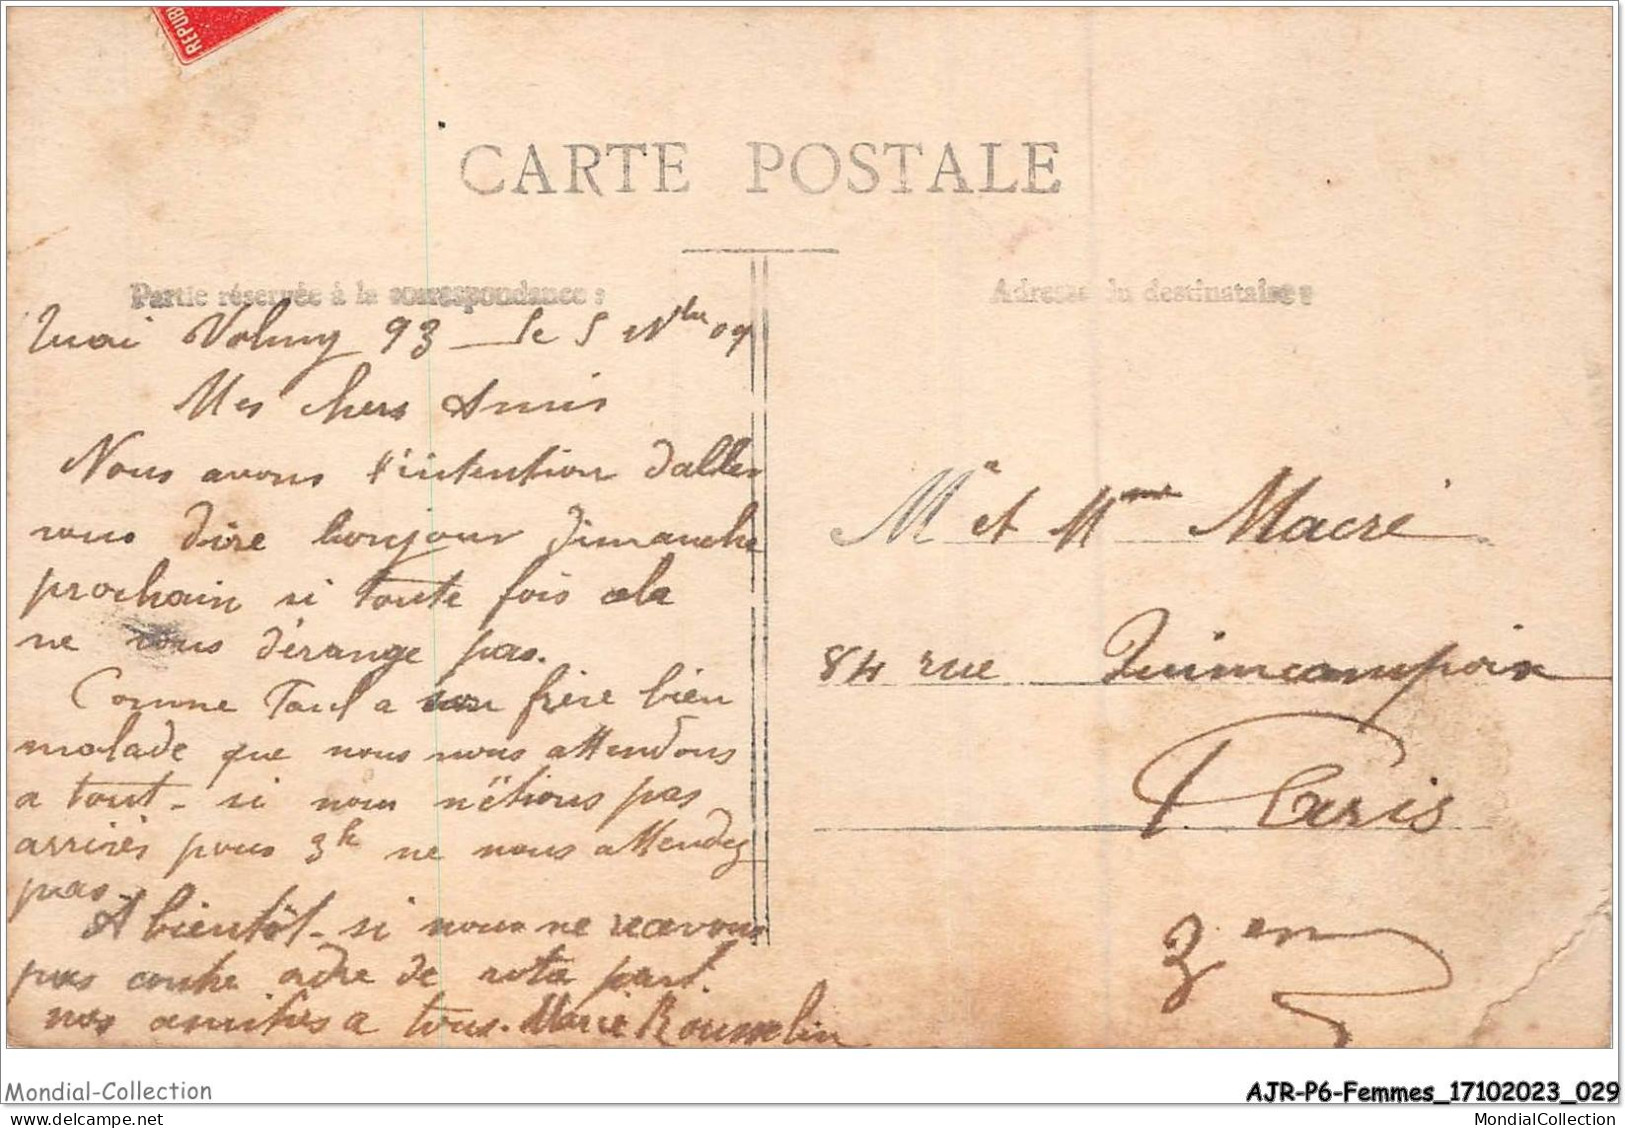 REPUB
CARTE POSTALE
Partie réservée à la correspondance :
Adresse du destinataire :
Quai Valmy 93 le 5 Nbre 09
Mes chers Amis
Nous avons l'intention d'aller
vous dire bonjour Dimanche
prochain si toute fois cela
ne vous dérange pas.
Comme Paul a son frère bien
malade que nous nous attendons
a tout - si nous n'étions pas
arrivés pour 3h ne nous attendez
pas -
A bientôt - si nous ne recevons
pas contre ordre de votre part.
nos amitiés a tous. Marie Rousselin
Mr et Mme Macré
84 rue Quincampoix
Paris
3em
Mondial-Collection
AJR-P6-Femmes_17102023_029
Mondial-Collection
MondialCollection